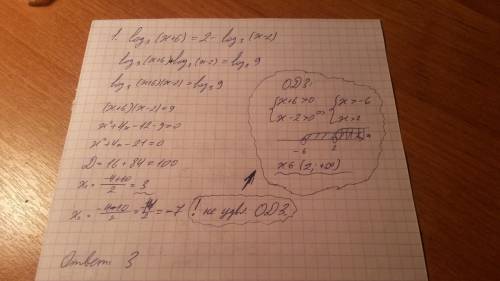 1. log₃(x+6) = 2 - log₃(x-2)
log₃(x+6)+log₃(x-2) = log₃ 9
log₃(x+6)(x-2) = log₃ 9
(x+6)(x-2) = 9
x²+4x-12-9=0
x²+4x-21=0
D = 16+84 = 100
x₁ = (-4+10)/2 = 3
x₂ = = -7
! не удвл. ОДЗ
ОДЗ:
{ x+6>0 { x>-6
{ x-2>0 { x>2
-6 2 x
x ∈ (2; +∞)
Ответ 3